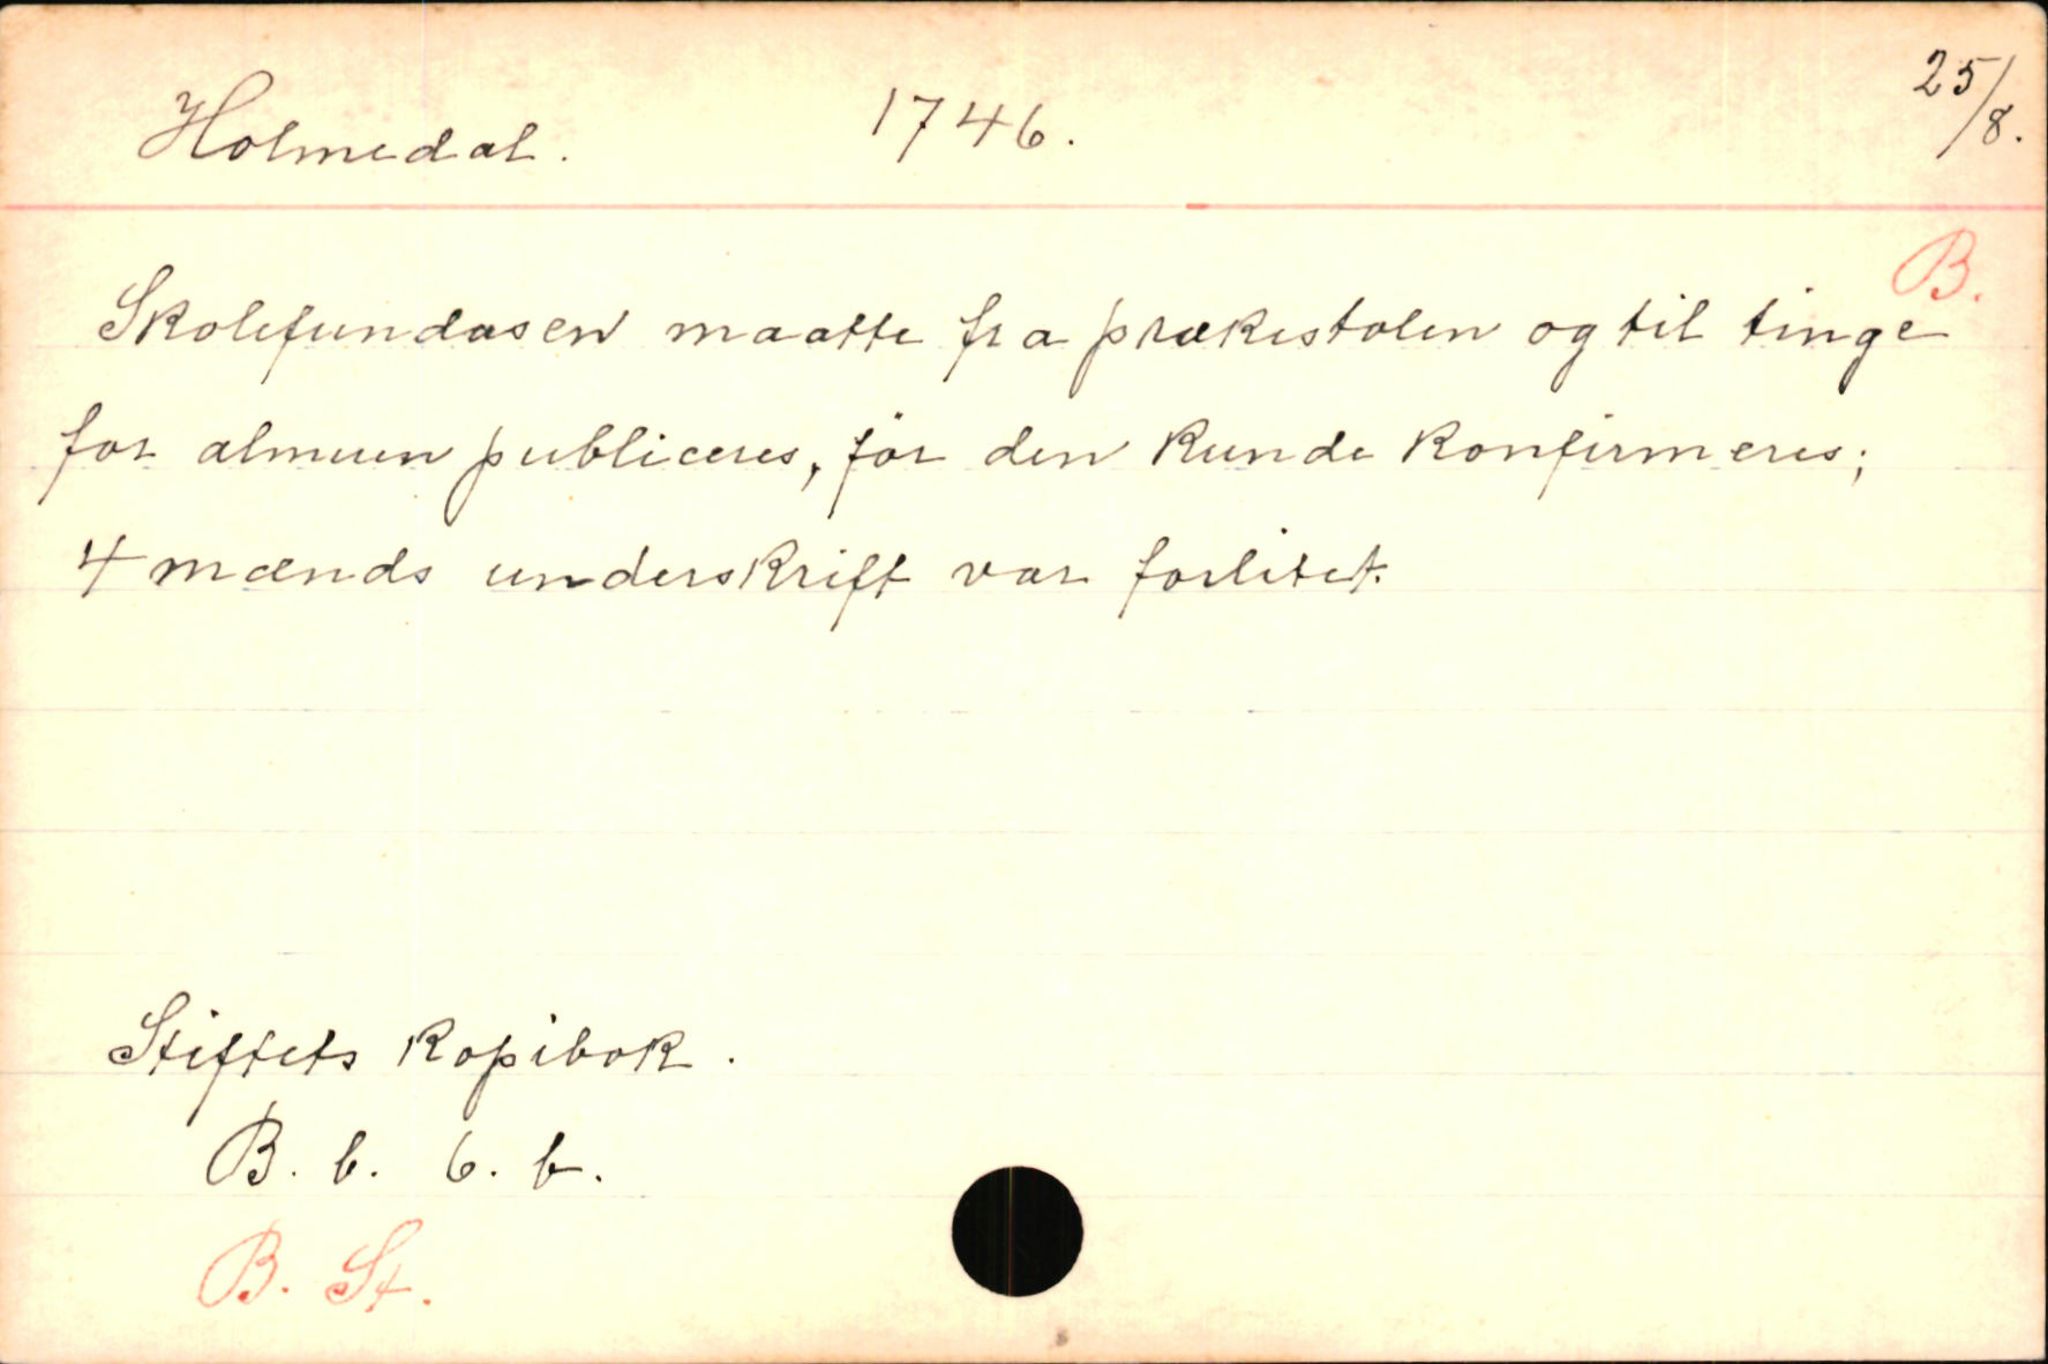 Holmedal. 1746. 25/8.
B.
Skolefundasen maatte fra prækestolen og til tinge
for almuen publiceres, før den kunde konfirmeres;
4 mænds underskrift var forlitet.
Stiftets kopibok.
B. b. 6. b.
B. St.